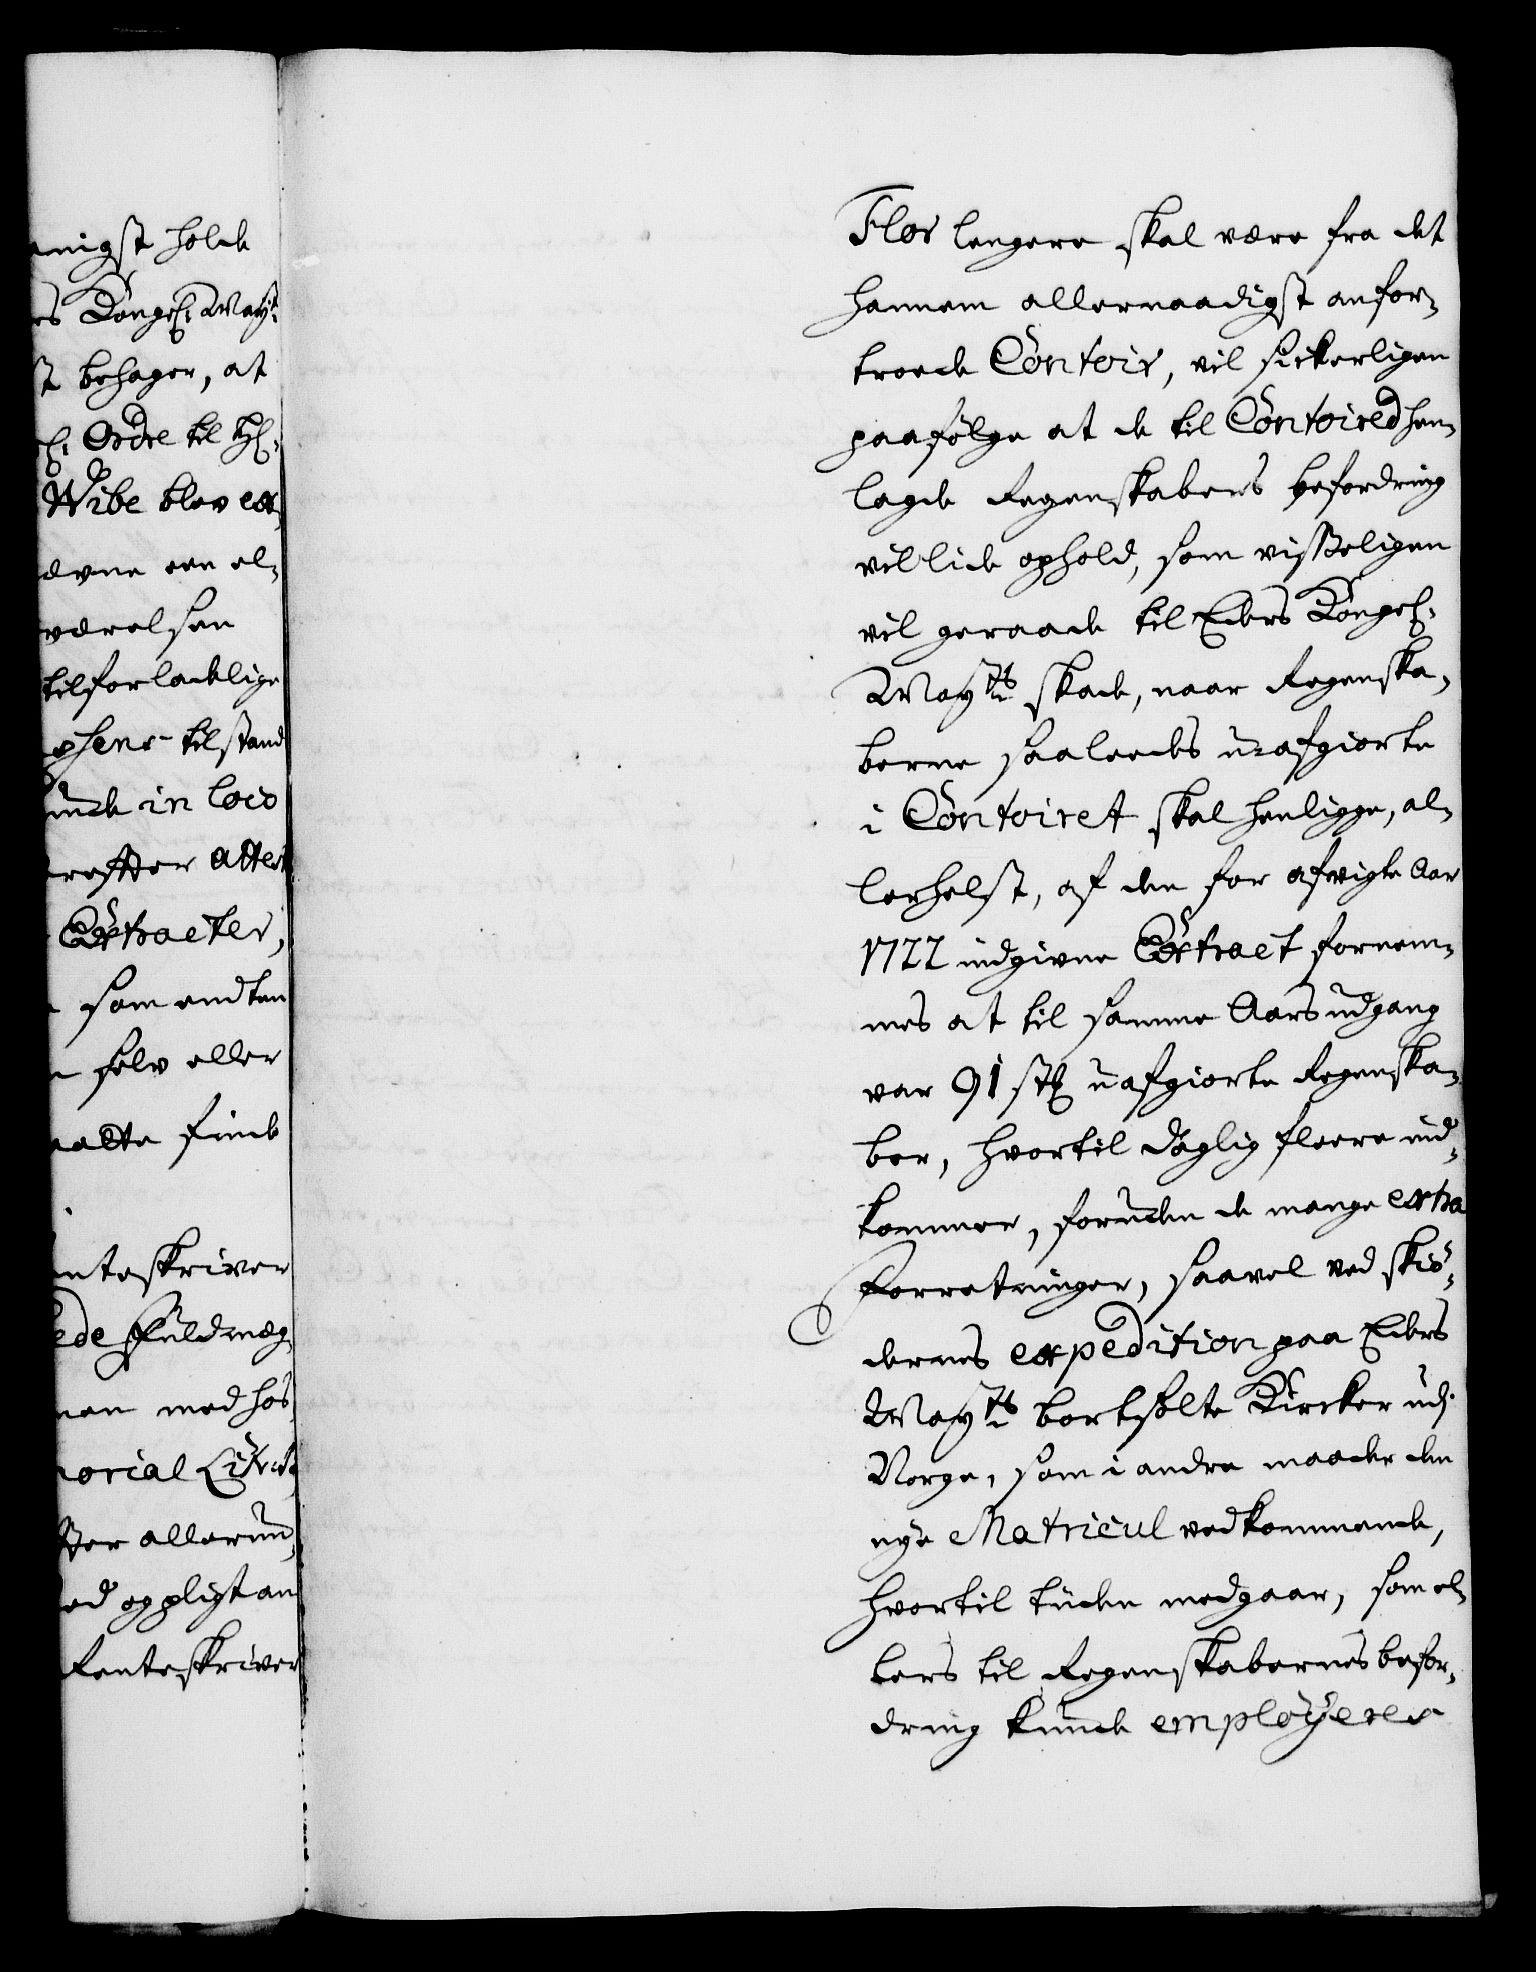 anigst holde
es Kongel: May:t
st behager, at
l: Ordre til H:
Wibe blev ex
ævne een el-
værelsen
tilforladelige
phens tilstand
unde in loco
reffter attest
Extracter,
som endten
selv eller
aatte finde
enteskriver
ede Fuldmæg-
nen med hos
morial Litr:
ser allerun-
ed og pligt an
Renteskriver
Flor lengere skal være fra det
hannem allernaadigst anfor-
troede Contoir, vil sickerligen
paafølge at de til Contoired hen-
lagde Regenskabers befordring
vil lide ophold, som visseligen
vil geraade til Eders Kongel:
May:ts skade, naar Regenska-
berne saaleedes u-afgiorte
i Contoiret skal henligge, al-
lerhelst, af den for afvigte Aar
1722 indgivne Extract fornem-
mes at til samme Aars udgang
var 91 stk u-afgiorte Regenska-
ber, hvortil daglig fleere ind-
kommer, foruden de mange extra
Forretninger, saavel ved skiö-
dernes expedition paa Eders
May:ts bortsolte Kircker udj
Norge, som i andre maader den
nye Matricul vedkommende,
hvortil tiiden medgaar, som el-
lers til Regenskabernes befor-
dring kunde employeres